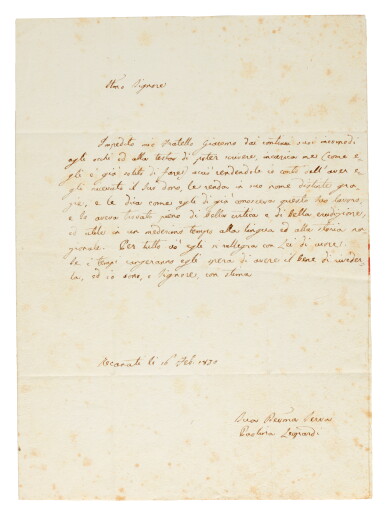 Signore
Impedito mio Fratello Giacomo dai continui suoi incomodi
agli occhi ed alla testa di poter scrivere, incarica me (come e-
gli è già solito di fare)
gli ricevuto il suo dono, le renda in suo nome distinte gra-
zie, e le dica come egli di già conosceva questo suo lavoro,
e lo aveva trovato pieno di bella critica e di bella erudizione,
ed utile in un medesimo tempo alla lingua ed alla storia na-
zionale. Per tutto ciò egli si rallegra con Lei di cuore
Se i tempi egli spera di avere il bene di riveder-
la, ed io sono, o Signore, con stima
Recanati li 16 Feb.
Sua Devma Serva
Paolina Leopardi